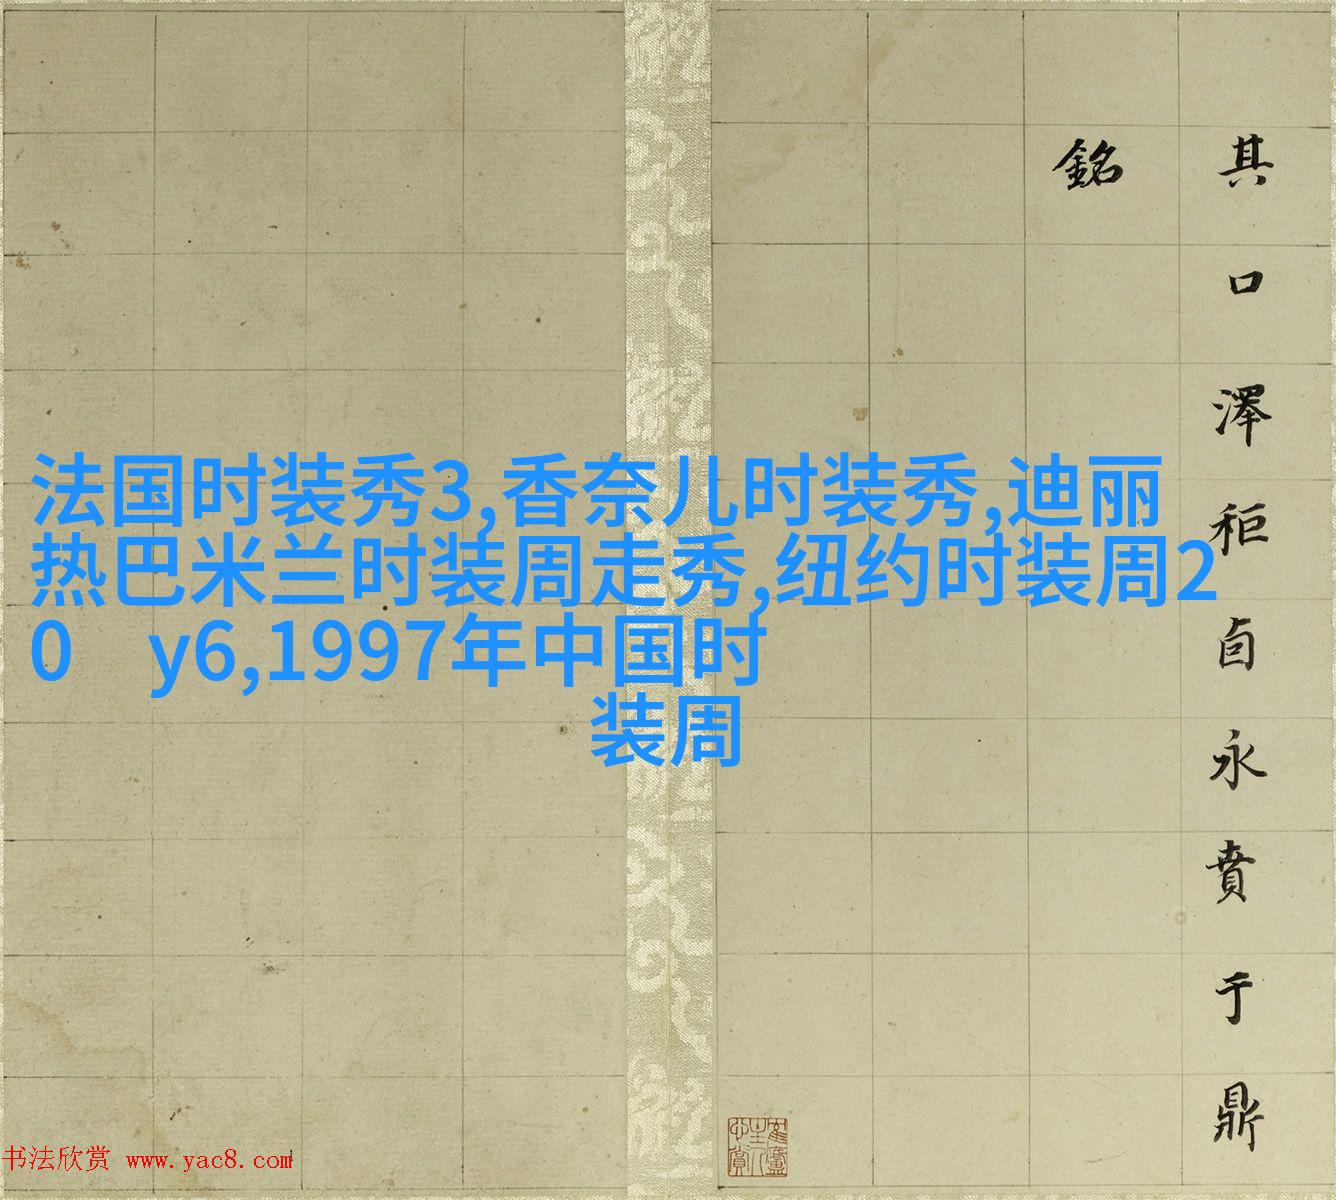 其口澤秬卣永賁于鼎
銘
法国时装秀3,香奈儿时装秀,迪丽
热巴米兰时装周走秀,纽约时装周2
0 y6,1997年中国时
装周
书法欣赏 www.yac8.com